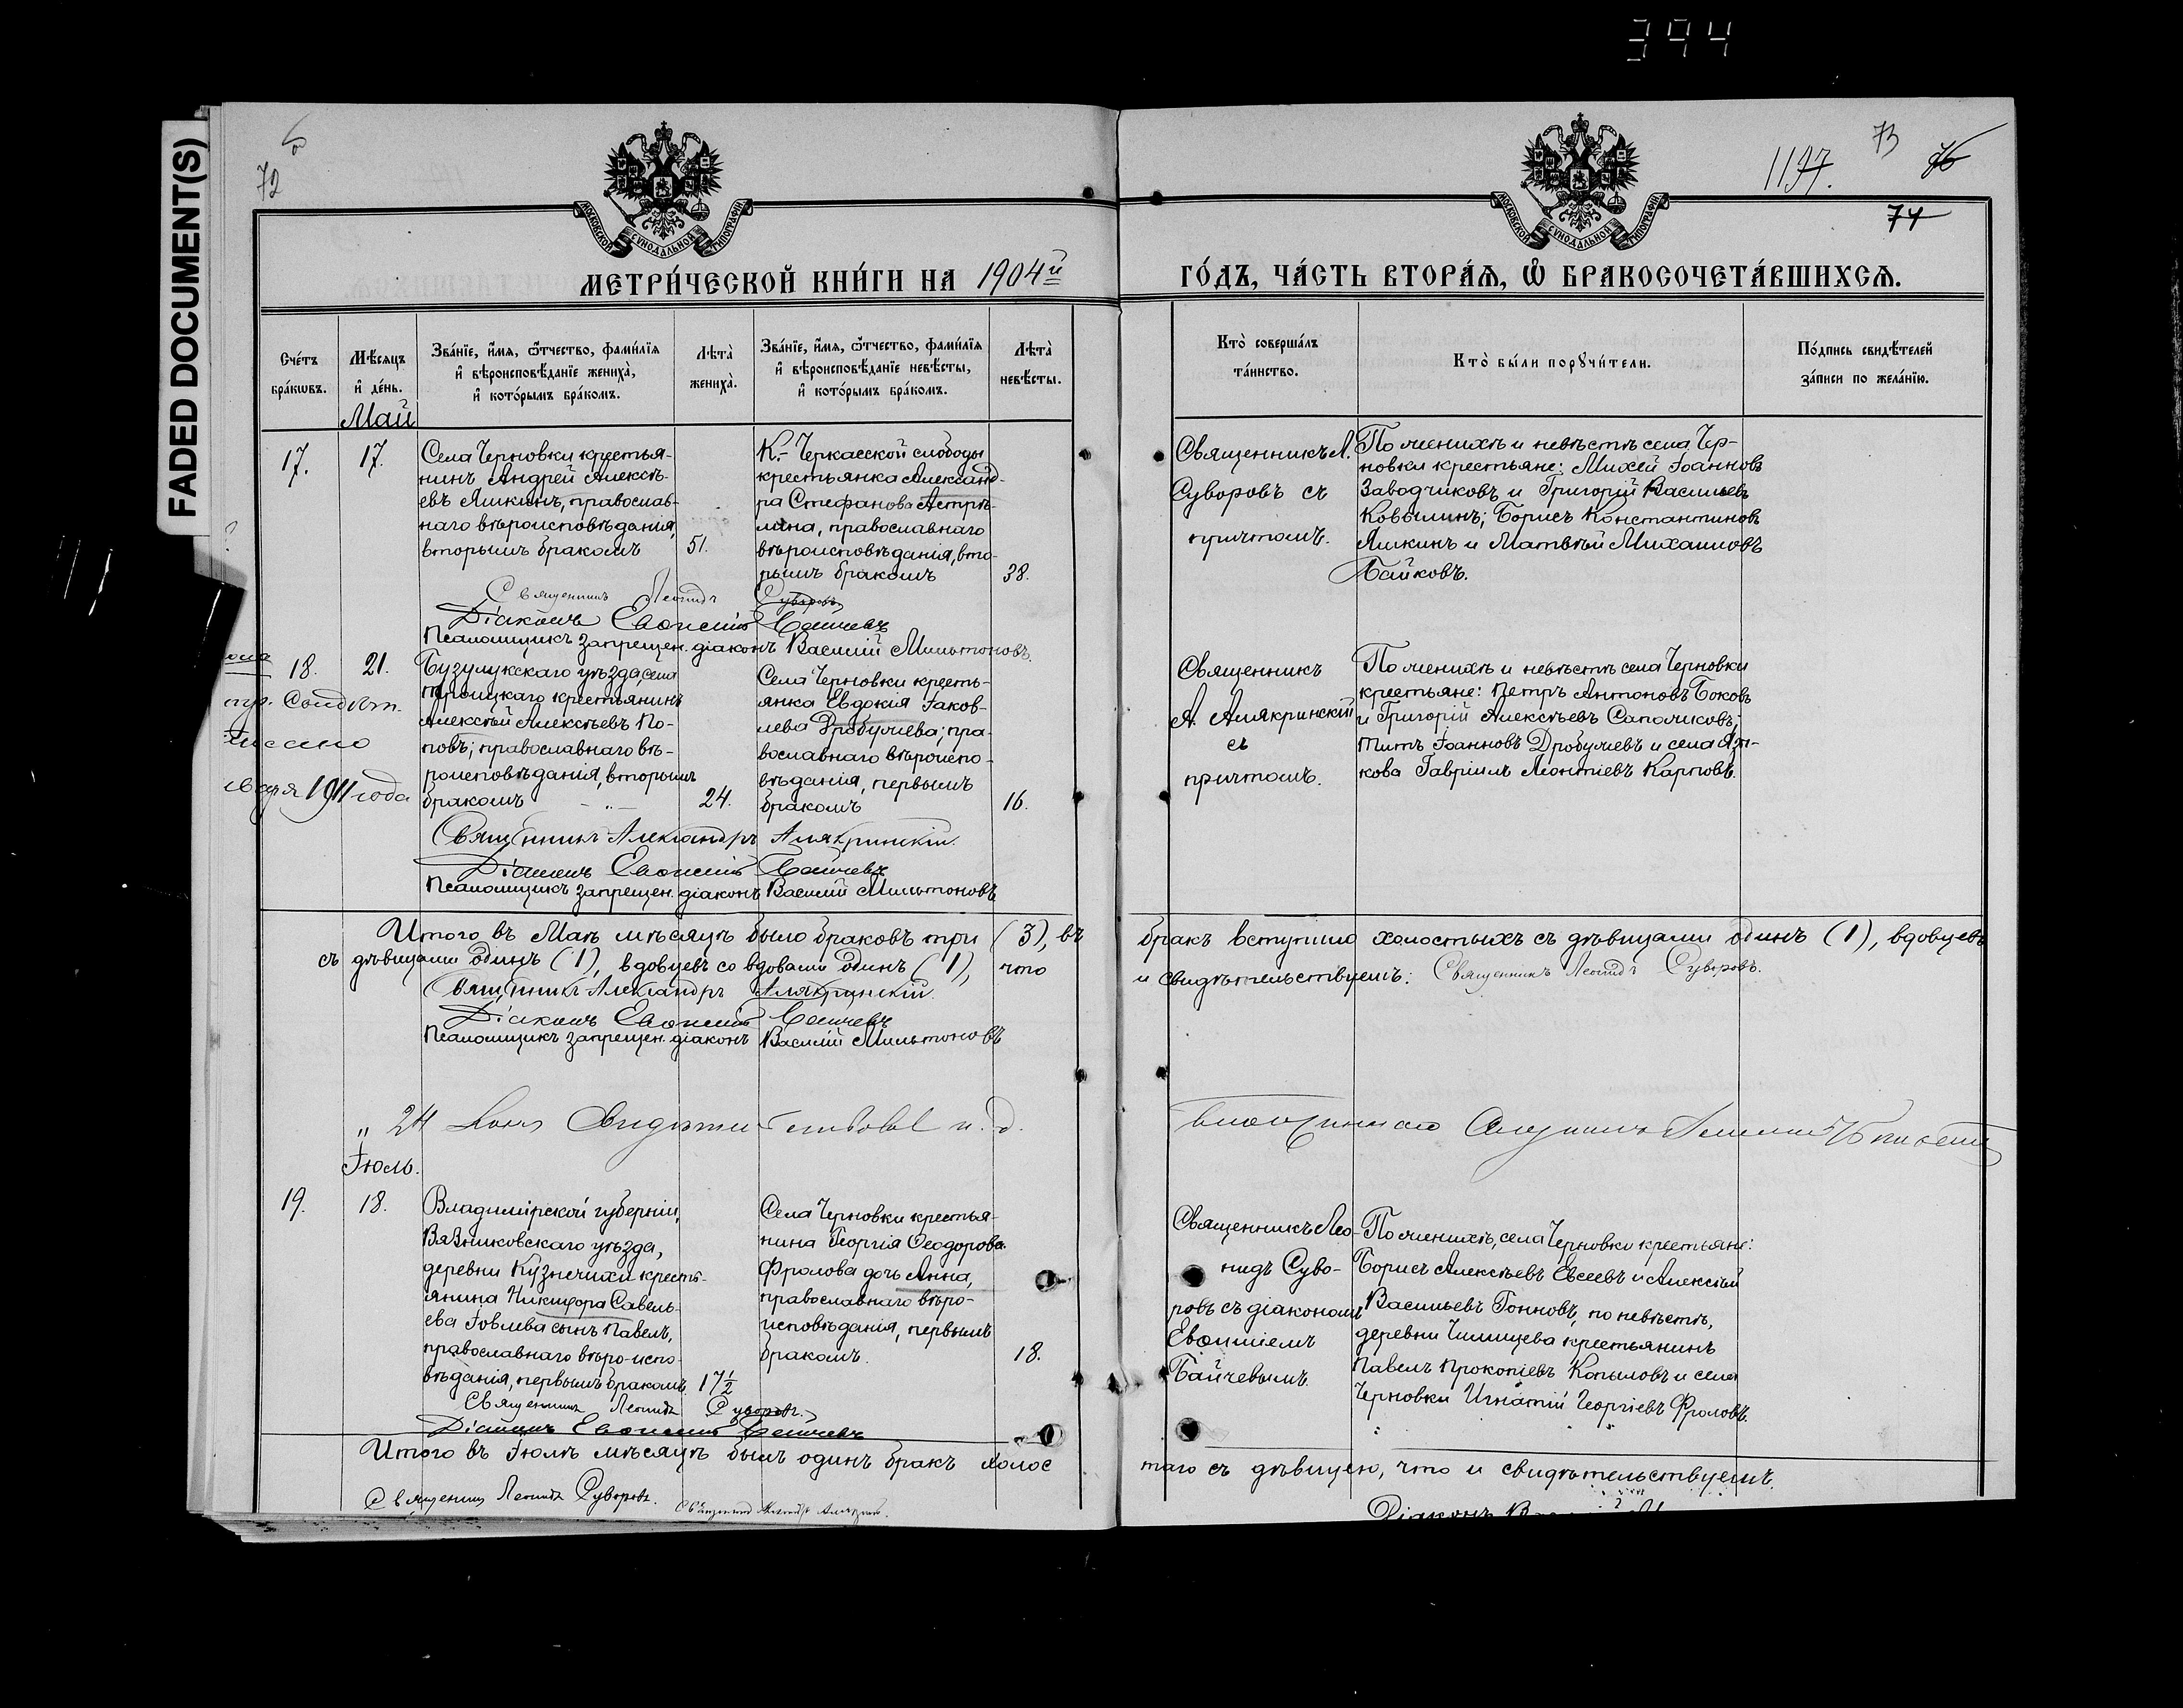 394
FADED DOCUMENT(S)
72
73
76
1197.
74
МОСКОВСКОЙ СУНОДАЛЬНОЙ ТИПОГРАФІИ
МОСКОВСКОЙ СУНОДАЛЬНОЙ ТИПОГРАФІИ
МЕТРИ́ЧЕСКОЙ КНИ́ГИ НА 1904й ГО́ДЪ, ЧА́СТЬ ВТОРА́Ѧ, Ѡ҆ БРАКОСОЧЕТА́ВШИХСѦ.
Счéтъ
брáкѡвъ.
Мѣ́сяцъ
и҆ дéнь.
Звáнїе, и҆́мѧ, ѻ҆́тчество, фамíлїѧ
и҆ вѣроисповѣ́данїе женихà,
и҆ котóрымъ брáкомъ.
Лѣ́тà
женихà.
Звáнїе, и҆́мѧ, ѻ҆́тчество, фамíлїѧ
и҆ вѣроисповѣ́данїе невѣ́сты,
и҆ котóрымъ брáкомъ.
Лѣ́тà
невѣ́сты.
Ктò совершáлъ
тáинство.
Ктò бы́ли порꙋчи́тели.
Пóдпись свидѣ́телей
зáписи по желáнїю.
Май
17.
17.
Села Черновки крестья-
нинъ Андрей Алексѣ-
евъ Яшкинъ, православ-
наго вѣроисповѣданія,
вторымъ бракомъ
51.
К.- Черкасской слободы
крестьянка Александ-
ра Стефанова Астрѣ-
лина, православнаго
вѣроисповѣданія, вто-
рымъ бракомъ
38.
Священникъ Л.
Суворовъ съ
причтомъ.
По женихѣ и невѣстѣ села Чер-
новки крестьяне: Михей Іоанновъ
Заводчиковъ и Григорій Васильевъ
Ковылинъ; Борисъ Константиновъ
Яшкинъ и Матвѣй Михаиловъ
Байковъ.
Священникъ Леонидъ Суворовъ
Діаконъ Евѳимій Байчевъ
Псаломщикъ запрещен. діаконъ Василій Мильтоновъ.
18.
21.
Бузулукскаго уѣзда, села
Троицкаго крестьянинъ
Алексѣй Алексѣевъ По-
повъ; православнаго вѣ-
роисповѣданія, вторымъ
бракомъ
24.
1911 года
Села Черновки кресть-
янка Евдокія Іаков-
лева Дробужева; пра-
вославнаго вѣроиспо-
вѣданія, первымъ
бракомъ
16.
Священникъ
А. Алякринскій
съ
причтомъ.
По женихѣ и невѣстѣ села Черновки
крестьяне: Петръ Антоновъ Боковъ
и Григорій Алексѣевъ Сапожковъ;
Титъ Іоанновъ Дробужевъ и села Яз-
кова Гавріилъ Леонтіевъ Карповъ.
Священникъ Александръ Алякринскій.
Діаконъ Евѳимій Байчевъ
Псаломщикъ запрещен. діаконъ Василій Мильтоновъ
Итого въ Маѣ мѣсяцѣ было браковъ три (3), въ бракъ вступило холостыхъ съ дѣвицами одинъ (1), вдовцевъ
съ дѣвицами одинъ (1), вдовцевъ со вдовами одинъ (1), что и свидѣтельствуемъ: Священникъ Леонидъ Суворовъ.
Священникъ Александръ Алякринскій.
Діаконъ Евѳимій Байчевъ
Псаломщикъ запрещен. діаконъ Василій Мильтоновъ
„ 24
Іюль.
19.
18.
Владимірской губерніи,
Вязниковскаго уѣзда,
деревни Кузнечихи кресть-
янина Никифора Савель-
ева Іовлева сынъ Павелъ,
православнаго вѣро-испо-
вѣданія, первымъ бракомъ
17½
Села Черновки крестья-
нина Георгія Ѳеодорова
Фролова дочь Анна,
православнаго вѣро-
исповѣданія, первымъ
бракомъ.
18.
Священникъ Лео-
нидъ Суво-
ровъ съ діакономъ
Евѳиміемъ
Байчевымъ.
По женихѣ, села Черновки крестьяне:
Борисъ Алексѣевъ Евсеевъ и Алексѣй
Васильевъ Гонновъ, по невѣстѣ,
деревни Чишищева крестьянинъ
Павелъ Прокопіевъ Копыловъ и села
Черновки Игнатій Георгіевъ Фроловъ.
Священникъ Леонидъ Суворовъ.
Діаконъ Евѳимій Байчевъ
Итого въ Іюлѣ мѣсяцѣ былъ одинъ бракъ холос таго съ дѣвицею, что и свидѣтельствуемъ.
Священникъ Леонидъ Суворовъ.
Діаконъ